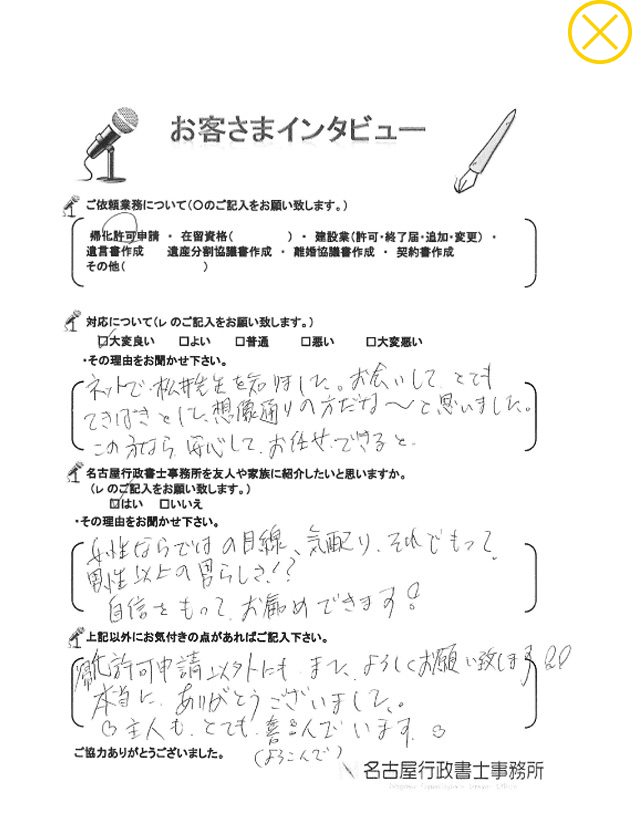 お客さまインタビュー
ご依頼業務について(〇のご記入をお願い致します。)
帰化許可申請 ・ 在留資格( ) ・ 建設業(許可・終了届・追加・変更) ・
遺言書作成 遺産分割協議書作成 ・ 離婚協議書作成 ・ 契約書作成
その他( )
対応について(レ のご記入をお願い致します。)
☑大変良い □よい □普通 □悪い □大変悪い
・その理由をお聞かせ下さい。
ネットで、松井先生を知りました。お会いして、とても
てきぱきとして、想像通りの方だな〜と思いました。
この方なら、安心して、お任せ、できると。
名古屋行政書士事務所を友人や家族に紹介したいと思いますか。
(レ のご記入をお願い致します。)
☑はい □いいえ
・その理由をお聞かせ下さい。
女性ならではの目線、気配り、それでもって、
男性以上の男らしさ!?
自信をもって、お薦めできます!
上記以外にお気付きの点があればご記入下さい。
帰化許可申請以外にも、また、よろしくお願い致します!!
本当に、ありがとうございました。
主人も、とても、喜んでいます。
(よろこんで)
ご協力ありがとうございました。
名古屋行政書士事務所